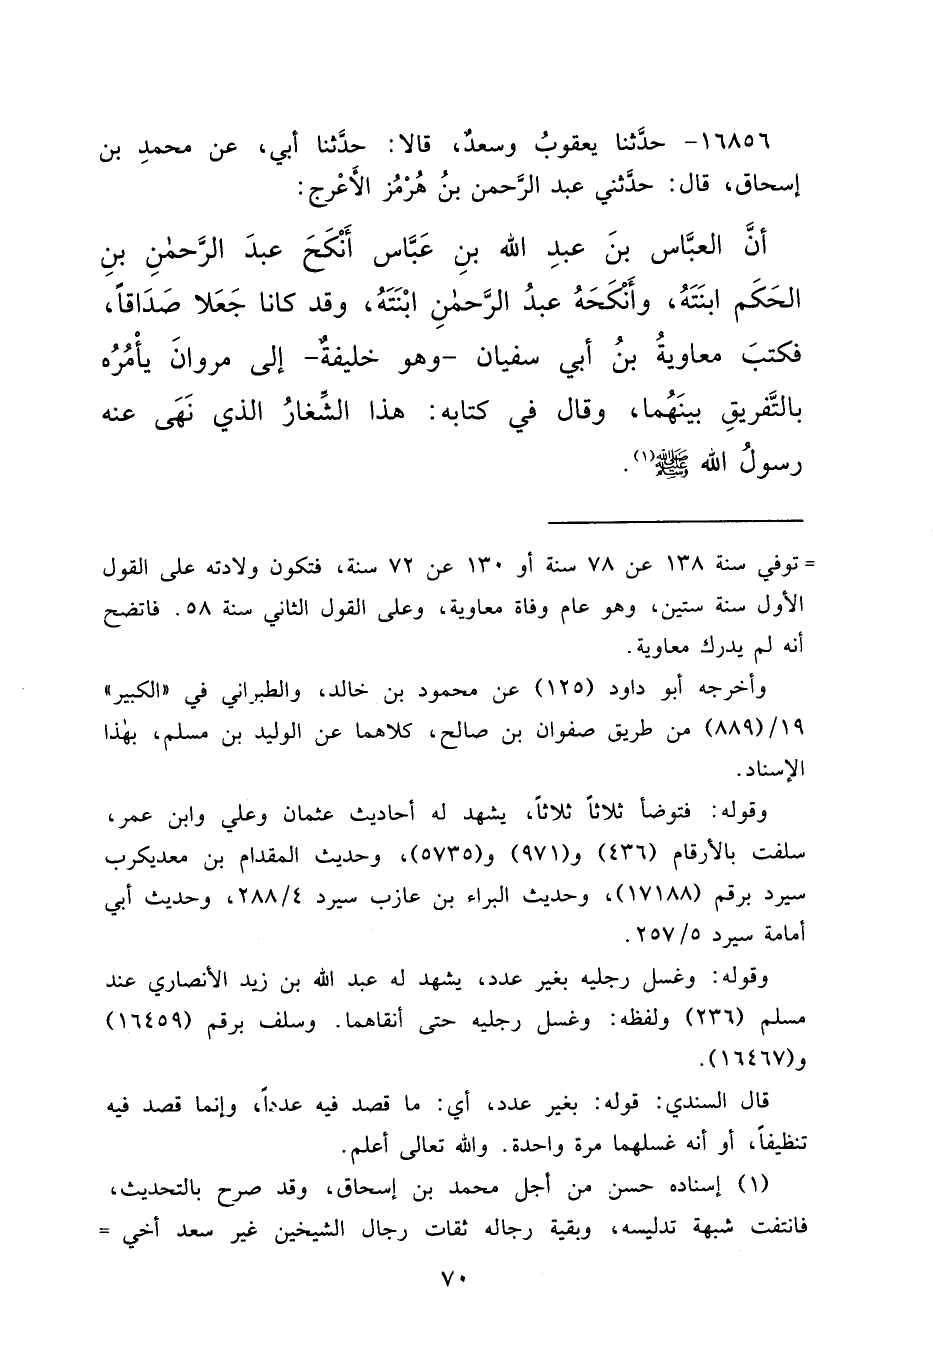 ١٦٨٥٦- حدَّثنا يعقوبُ وسعدٌ، قالا: حدَّثنا أبي، عن محمدِ بن
إسحاق، قال: حدَّثني عبد الرَّحمن بنُ هُرْمُز الأَعْرج:
أنَّ العبَّاس بنَ عبدِ الله بنِ عَبَّاس أَنْكَحَ عبدَ الرَّحمٰنِ بنِ
الحَكَم ابنَتَهُ، وأَنْكَحَهُ عبدُ الرَّحمٰنِ ابْنَتَهُ، وقد كانا جَعَلا صَدَاقاً،
فكتبَ معاويةُ بنُ أبي سفيان -وهو خليفةٌ- إلى مروانَ يأْمُرُه
بالتَّفريقِ بينَهُما، وقال في كتابه: هذا الشِّغارُ الذي نَهَى عنه
رسولُ الله ﷺ(١).
= توفي سنة ١٣٨ عن ٧٨ سنة أو ١٣٠ عن ٧٢ سنة، فتكون ولادته على القول
الأول سنة ستين، وهو عام وفاة معاوية، وعلى القول الثاني سنة ٥٨. فاتضح
أنه لم يدرك معاوية.
وأخرجه أبو داود (١٢٥) عن محمود بن خالد، والطبراني في «الكبير»
١٩/(٨٨٩) من طريق صفوان بن صالح، كلاهما عن الوليد بن مسلم، بهٰذا
الإسناد.
وقوله: فتوضأ ثلاثاً ثلاثاً، يشهد له أحاديث عثمان وعلي وابن عمر،
سلفت بالأرقام (٤٣٦) و(٩٧١) و(٥٧٣٥)، وحديث المقدام بن معديكرب
سيرد برقم (١٧١٨٨)، وحديث البراء بن عازب سيرد ٢٨٨/٤، وحديث أبي
أمامة سيرد ٢٥٧/٥.
وقوله: وغسل رجليه بغير عدد، يشهد له عبد الله بن زيد الأنصاري عند
مسلم (٢٣٦) ولفظه: وغسل رجليه حتى أنقاهما. وسلف برقم (١٦٤٥٩)
و(١٦٤٦٧).
قال السندي: قوله: بغير عدد، أي: ما قصد فيه عدداً، وإنما قصد فيه
تنظيفاً، أو أنه غسلهما مرة واحدة. والله تعالى أعلم.
(١) إسناده حسن من أجل محمد بن إسحاق، وقد صرح بالتحديث،
فانتفت شبهة تدليسه، وبقية رجاله ثقات رجال الشيخين غير سعد أخي =
٧٠